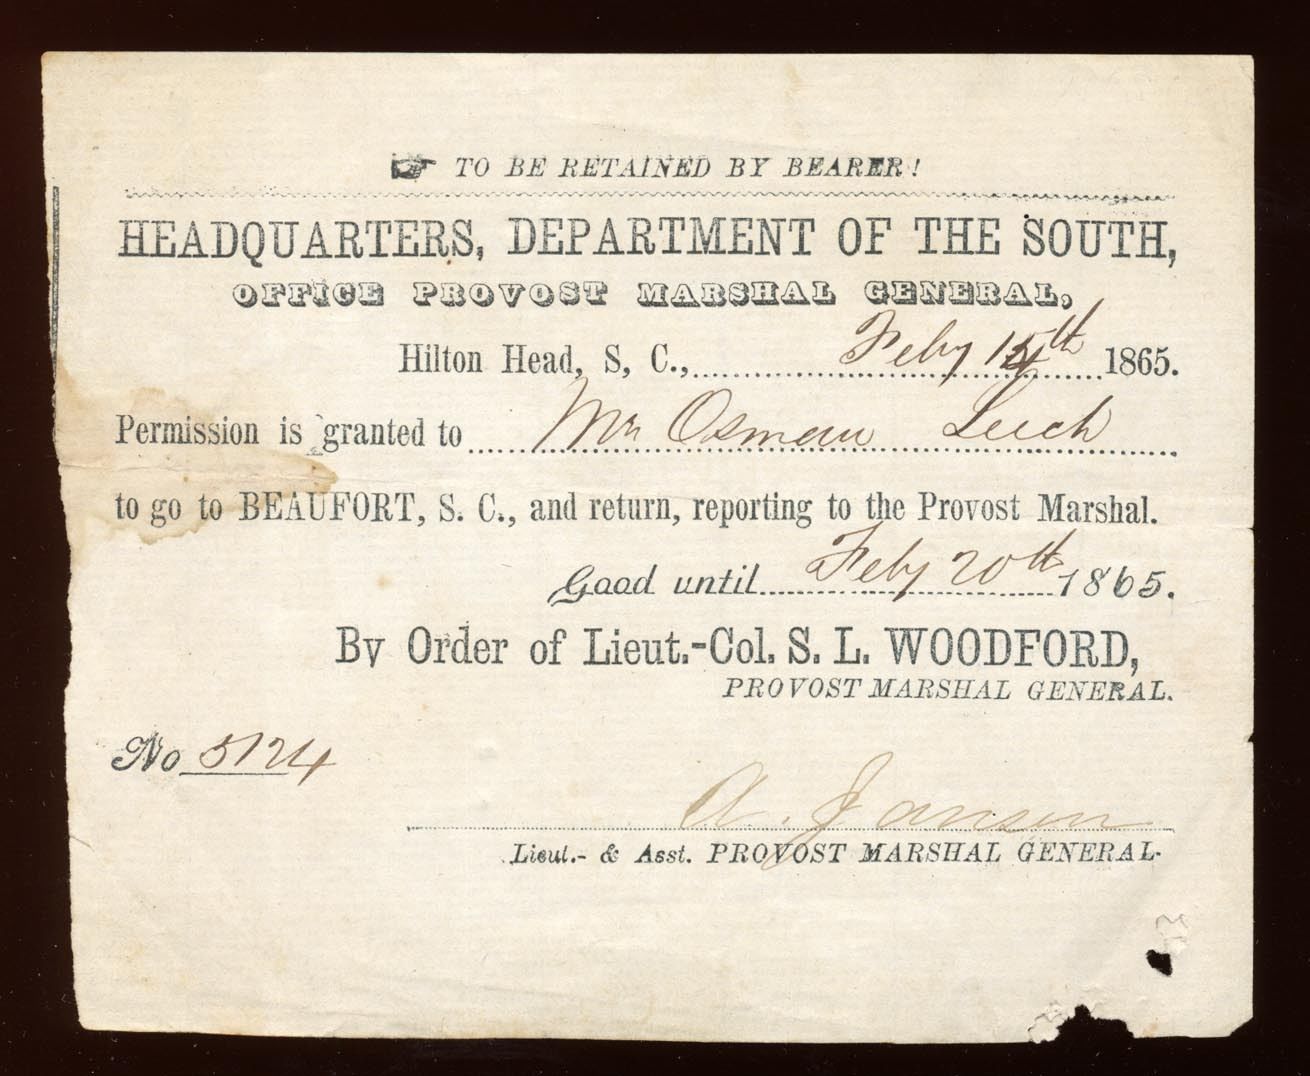 ☞ TO BE RETAINED BY BEARER!
HEADQUARTERS, DEPARTMENT OF THE SOUTH,
OFFICE PROVOST MARSHAL GENERAL,
Hilton Head, S, C., Feby 1865.
Permission is granted to Mr Osman Leech
to go to BEAUFORT, S. C., and return, reporting to the Provost Marshal.
Good until Feby 20th 1865.
By Order of Lieut.-Col. S. L. WOODFORD,
PROVOST MARSHAL GENERAL.
No 5124
A. Jansen
Lieut.- & Asst. PROVOST MARSHAL GENERAL.